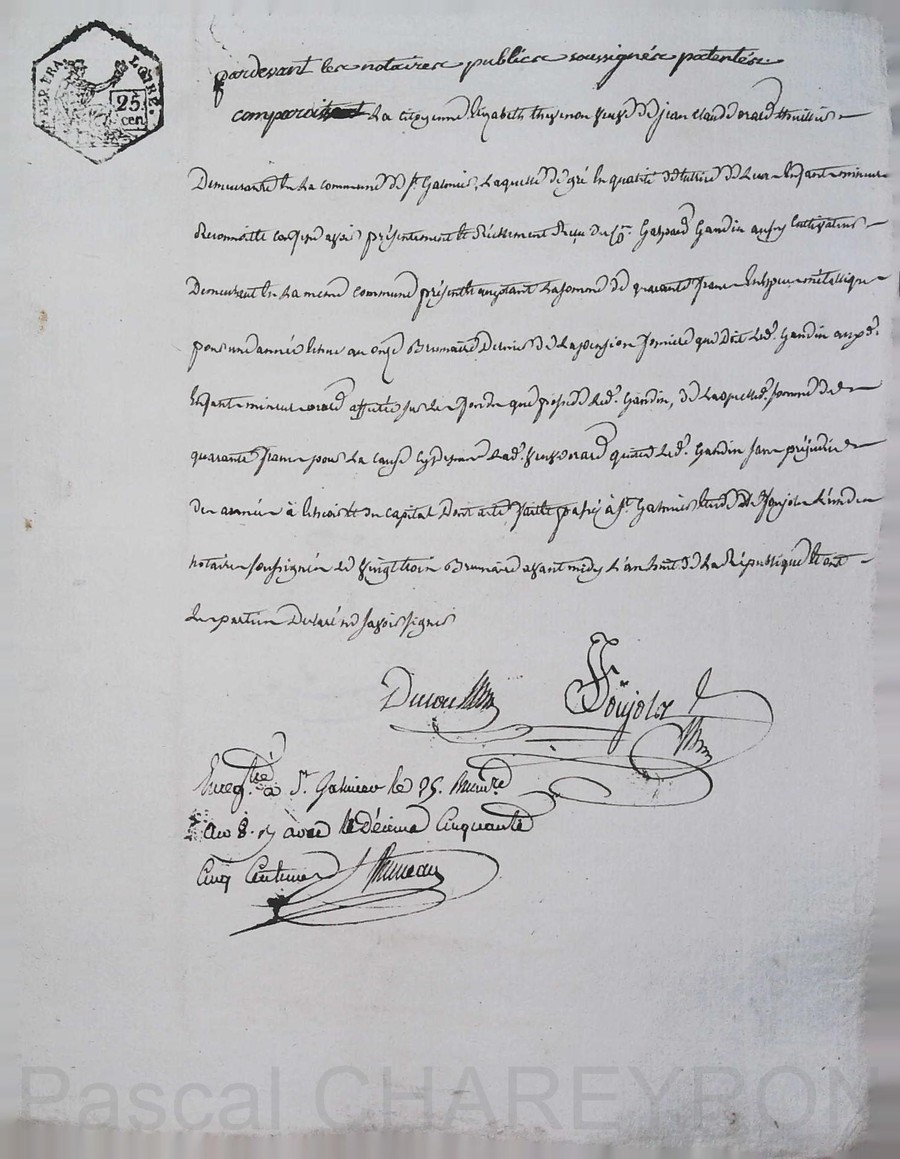 REP. FRA. LOIRE.
25. cen
pardevant les notaires publics soussignés patentés
comparoit La citoyenne Elizabeth veuve de jean claude orard
Demeurante En La commune de St. Galmier, Laquelle de gré En qualité de tutrice de Leurs Enfants mineurs
présentement Et réellement Reçu du Cn. Gaspard Gandin Cultivateur
Demeurant En La meme commune présent acceptant La somme de quarante francs En Espece métallique
pour une année Echue au onze Brumaire Dernier de La pension fonciere que Doit Led. Gandin auxd.
Enfants mineurs orard affectée sur Les fonds que possede Led. Gandin, de Laquelle somme de
quarante francs pour La cause Cy dessus Lad. veuve orard quitte Led. Gandin sans préjudice
à Echeoir Et du capital Dont acte fait Et passé à St. Galmier Etude de foujols L'un des
notaires soussignés Le vingt trois Brumaire avant midy L'an huit de La République Et ont
Les parties Declaré ne savoir signer
foujols
Enregtré à St. Galmier le 25. Brumre.
an 8. avec le Décime Cinquante
Cinq Centimes
Pascal CHAREYRON